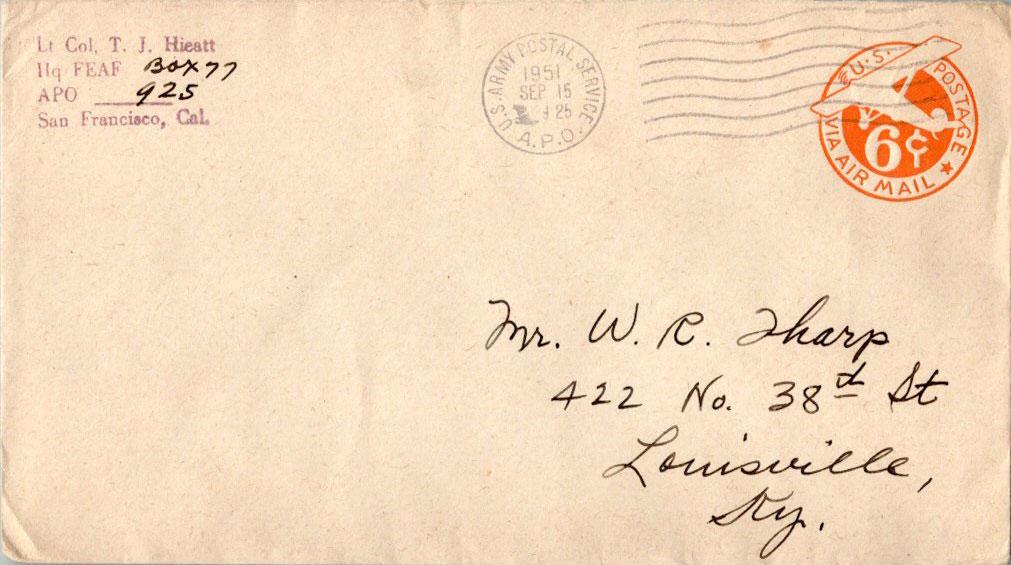 Lt Col, T. J. Hieatt
Hq FEAF BOX 77
APO 925
San Francisco, Cal.
U.S. ARMY POSTAL SERVICE
1951
SEP 15
9 25
A.P.O.
U.S. POSTAGE
6¢
VIA AIR MAIL
Mr. W. R. Tharp
422 No. 38th St
Louisville,
Ky.